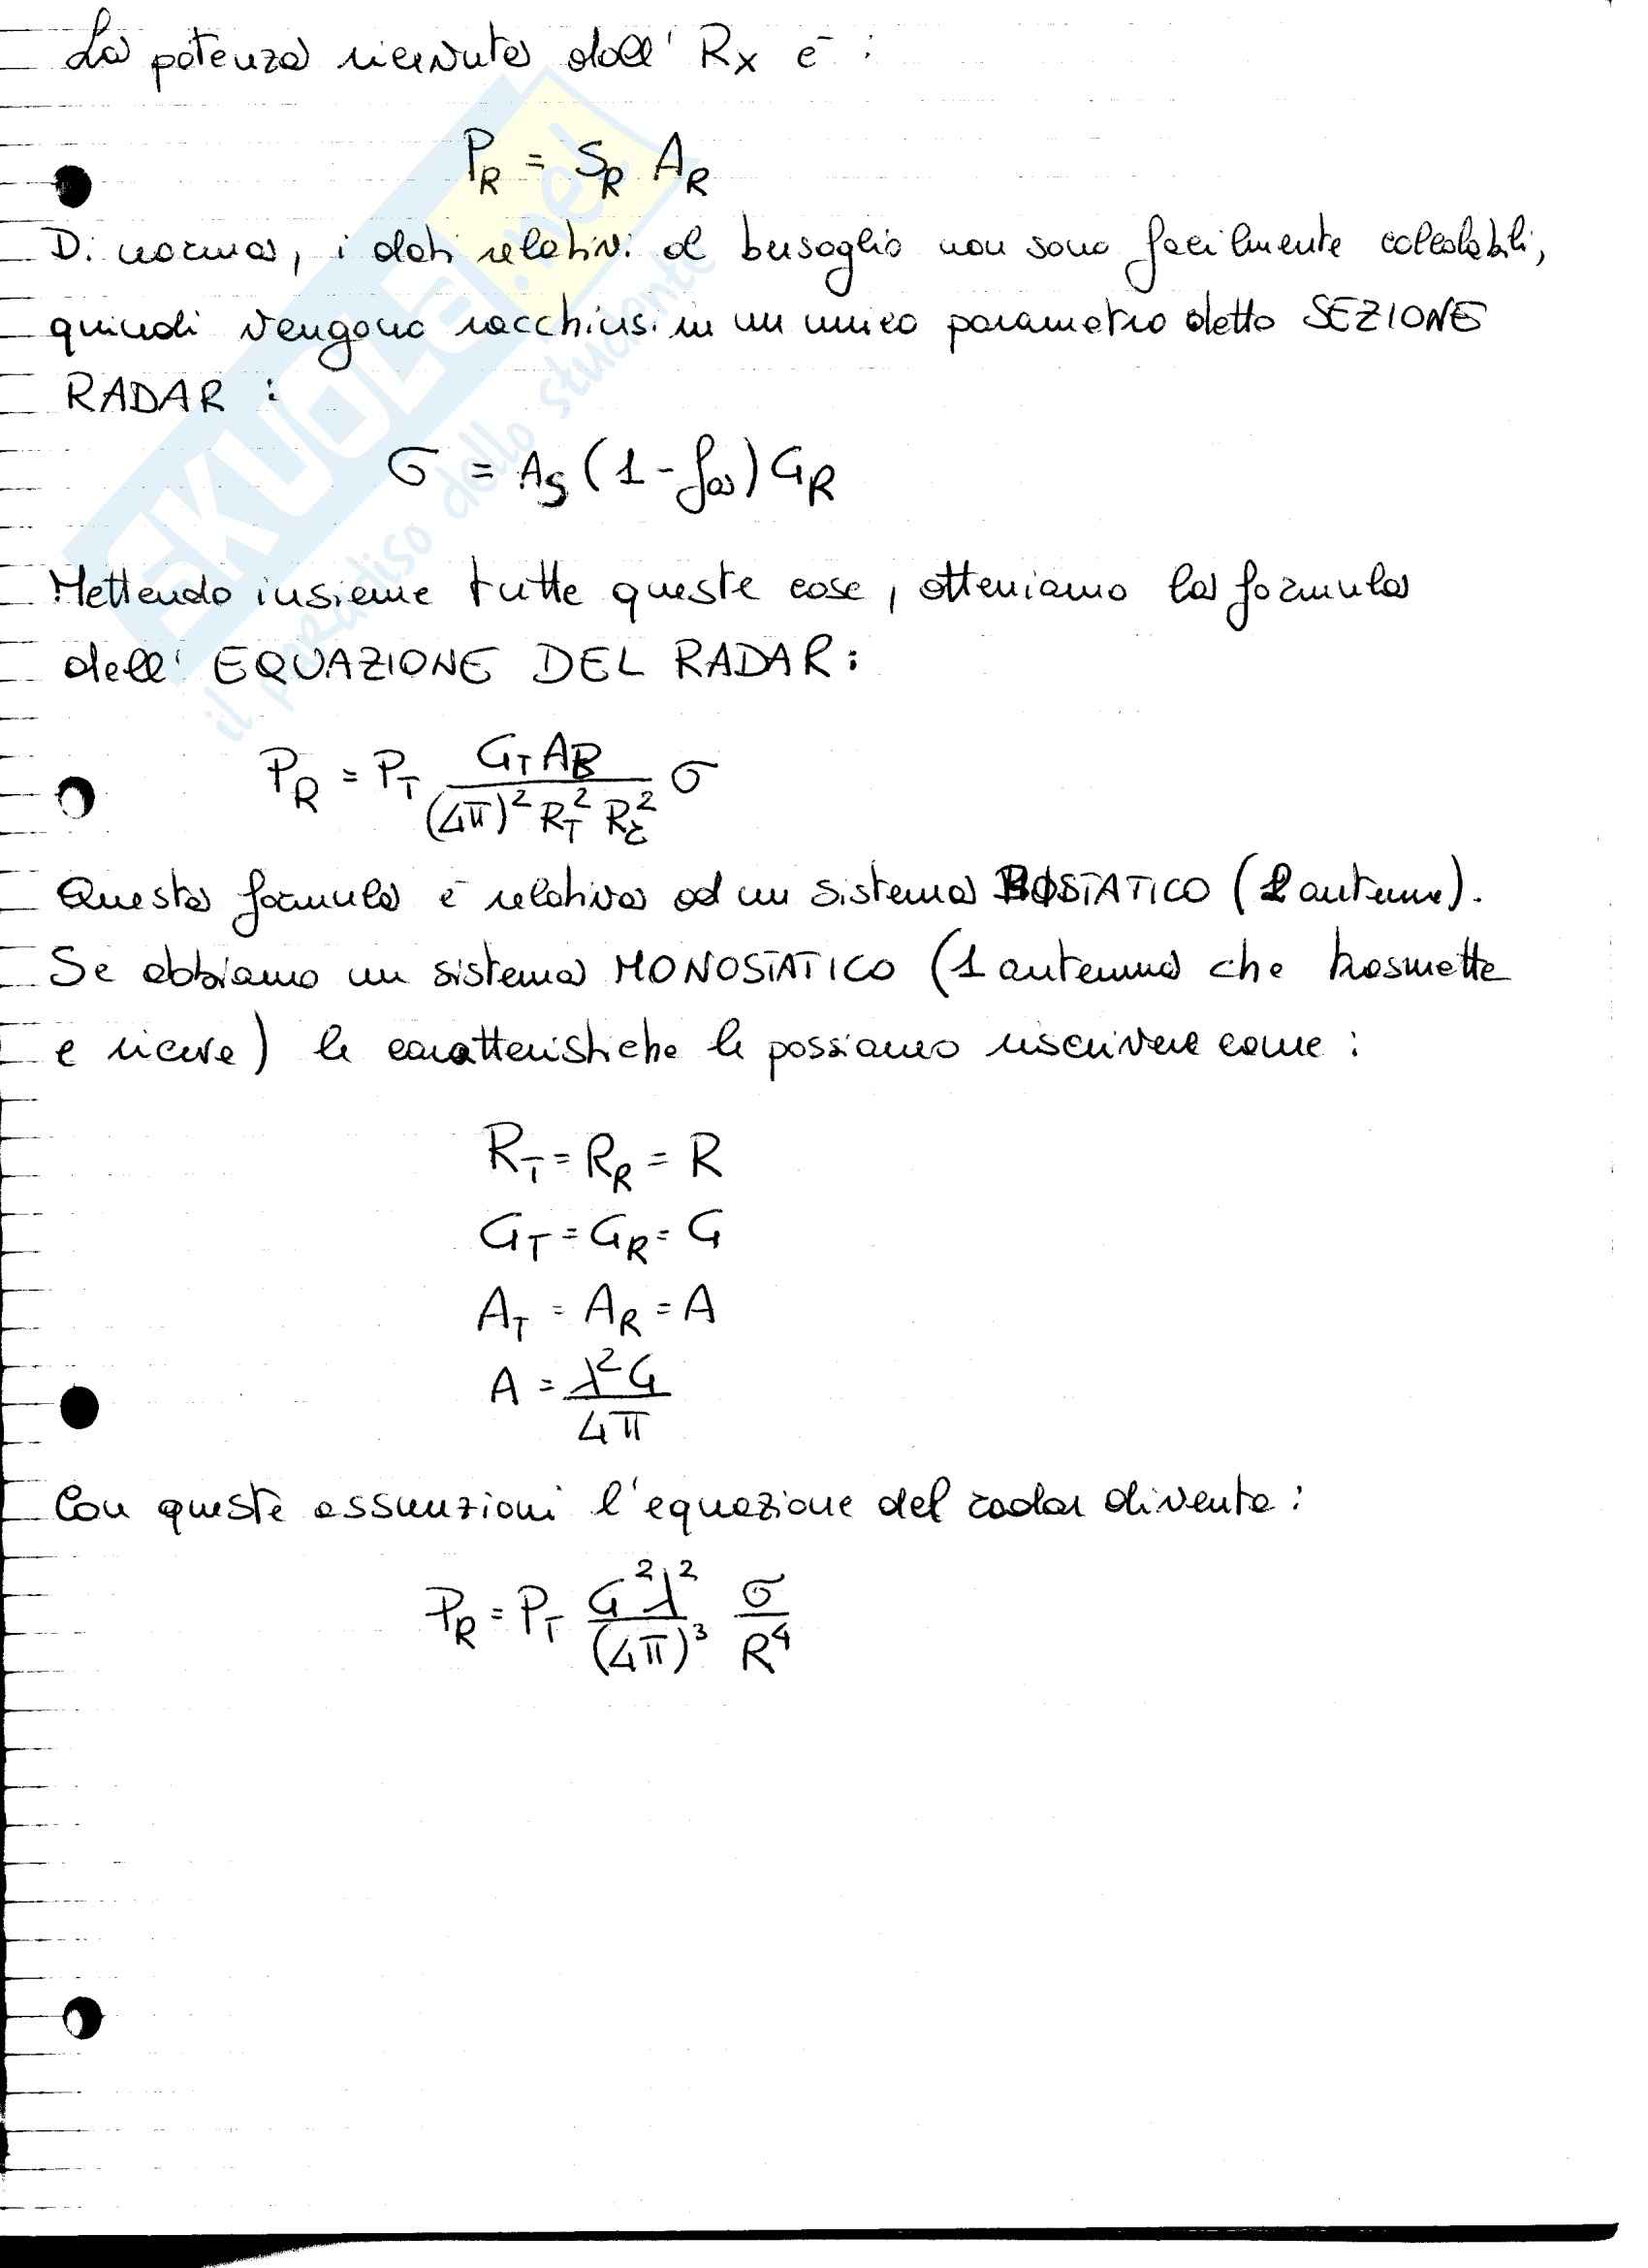 La potenza ricevuta dall' Rx è :
P_R = S_R A_R
Di norma, i dati relativi al bersaglio non sono facilmente calcolabili,
quindi vengono racchiusi in un unico parametro detto SEZIONE
RADAR :
σ = A_S (1 - f_a) G_R
Mettendo insieme tutte queste cose, otteniamo la formula
dell' EQUAZIONE DEL RADAR :
P_R = P_T \frac{G_T A_R}{(4π)^2 R_T^2 R_R^2} σ
Questa formula è relativa ad un sistema BISTATICO (2 antenne).
Se abbiamo un sistema MONOSTATICO (1 antenna che trasmette
e riceve) le caratteristiche le possiamo riscrivere come :
R_T = R_R = R
G_T = G_R = G
A_T = A_R = A
A = \frac{λ^2 G}{4π}
Con queste assunzioni l'equazione del radar diventa :
P_R = P_T \frac{G^2 λ^2}{(4π)^3} \frac{σ}{R^4}
SKUOLA.net
il paradiso dello studente